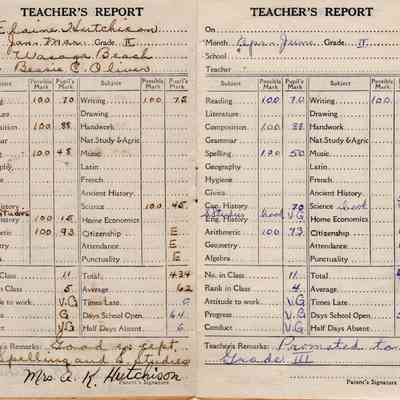 TEACHER'S REPORT
Elaine Hutchison
Jan. Mar. Grade II
Wasaga Beach
Bessie C. Oliver
Subject Possible Mark Pupil's Mark Subject Possible Mark Pupil's Mark
100 70 Writing 100 75
Drawing
osition 100 88 Handwork
mar Nat. Study & Agric
g 100 48 Music
phy Latin
French
Ancient History
Science 100 45
Studies
History 100 15 Home Economics
etic 100 93 Citizenship E
Attendance E
Punctuality E
Class 11 Total 434
Class 5 Average 62
to work V.G Times Late 0
G Days School Open 64
V.G Half Days Absent 6
Remarks: Good except
Spelling and S. Studies
Mrs A. K. Hutchison
Parent's Signature
TEACHER'S REPORT
On
Month Apr. June Grade II
School
Teacher
Subject Possible Mark Pupil's Mark Subject Possible Mark
Reading 100 70 Writing 100
Literature Drawing
Composition 100 88 Handwork
Grammar Nat. Study & Agric
Spelling 100 50 Music
Geography Latin
Hygiene French
Civics Ancient History
Can. History 70 Science
S Studies
Eng. History V.G Home Economics
Arithmetic 100 73 Citizenship
Geometry Attendance
Algebra Punctuality
No. in Class 11 Total
Rank in Class 4 Average
Attitude to work V.G Times Late
Progress V.G Days School Open
Conduct V.G Half Days Absent
Teacher's Remarks: Promoted to
Grade III
Parent's Signature